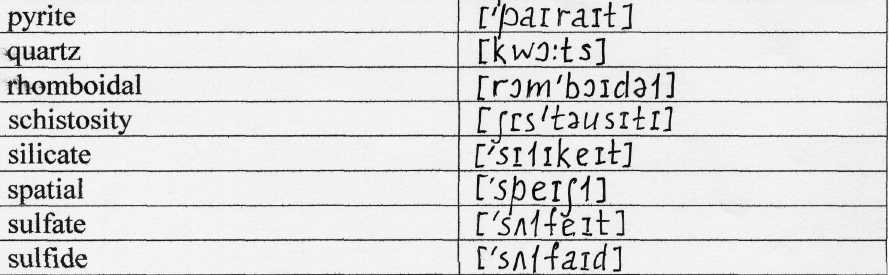 pyrite ['paɪraɪt]
quartz [kwɔ:ts]
rhomboidal [rɔm'bɔɪdəl]
schistosity [ʃɪs'təusɪtɪ]
silicate ['sɪlɪkeɪt]
spatial ['speɪʃl]
sulfate ['sʌlfeɪt]
sulfide ['sʌlfaɪd]